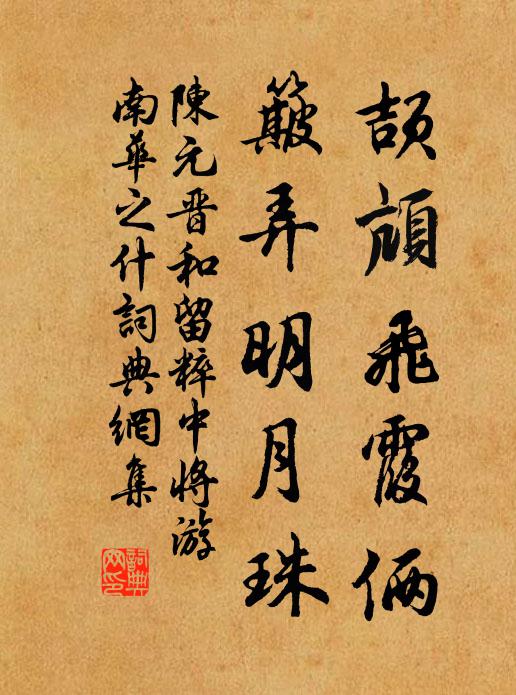 頡頏飛霞俩
簸弄明月珠
陳元晋和留粹中将游
南華之什詞典網集
詞典网印